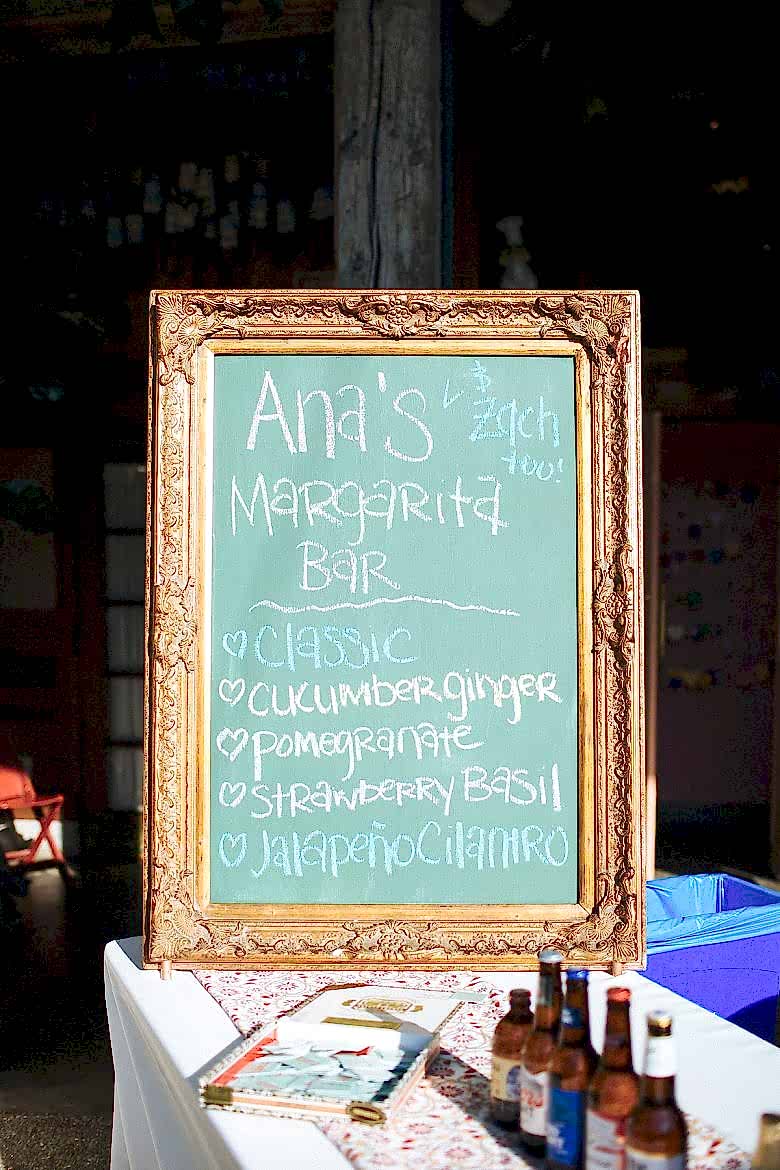 Ana's
& Zach
too!
Margarita
Bar
♡ Classic
♡ cucumber ginger
♡ pomegranate
♡ strawberry Basil
♡ Jalapeño Cilantro